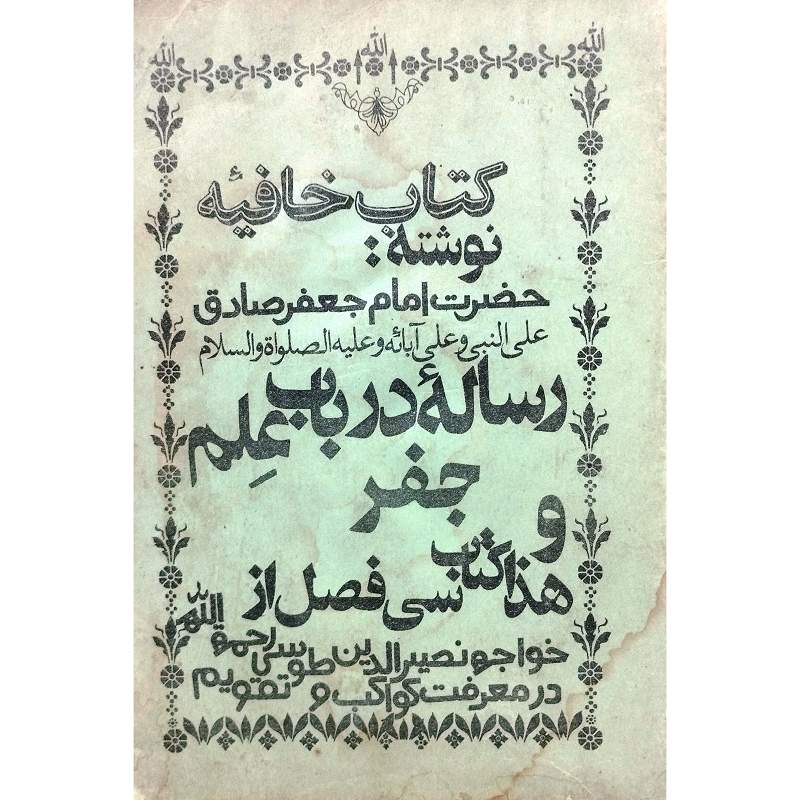 الله الله الله
کتاب خافیه
نوشته:
حضرت امام جعفر صادق
علی النبی و علی آبائه و علیه الصلواة والسلام
رسالهٔ در باب علم
جفر
و
هذا کتاب سی فصل از
خواجه نصیر الدین طوسی رحمة الله
در معرفت کواکب و تقویم